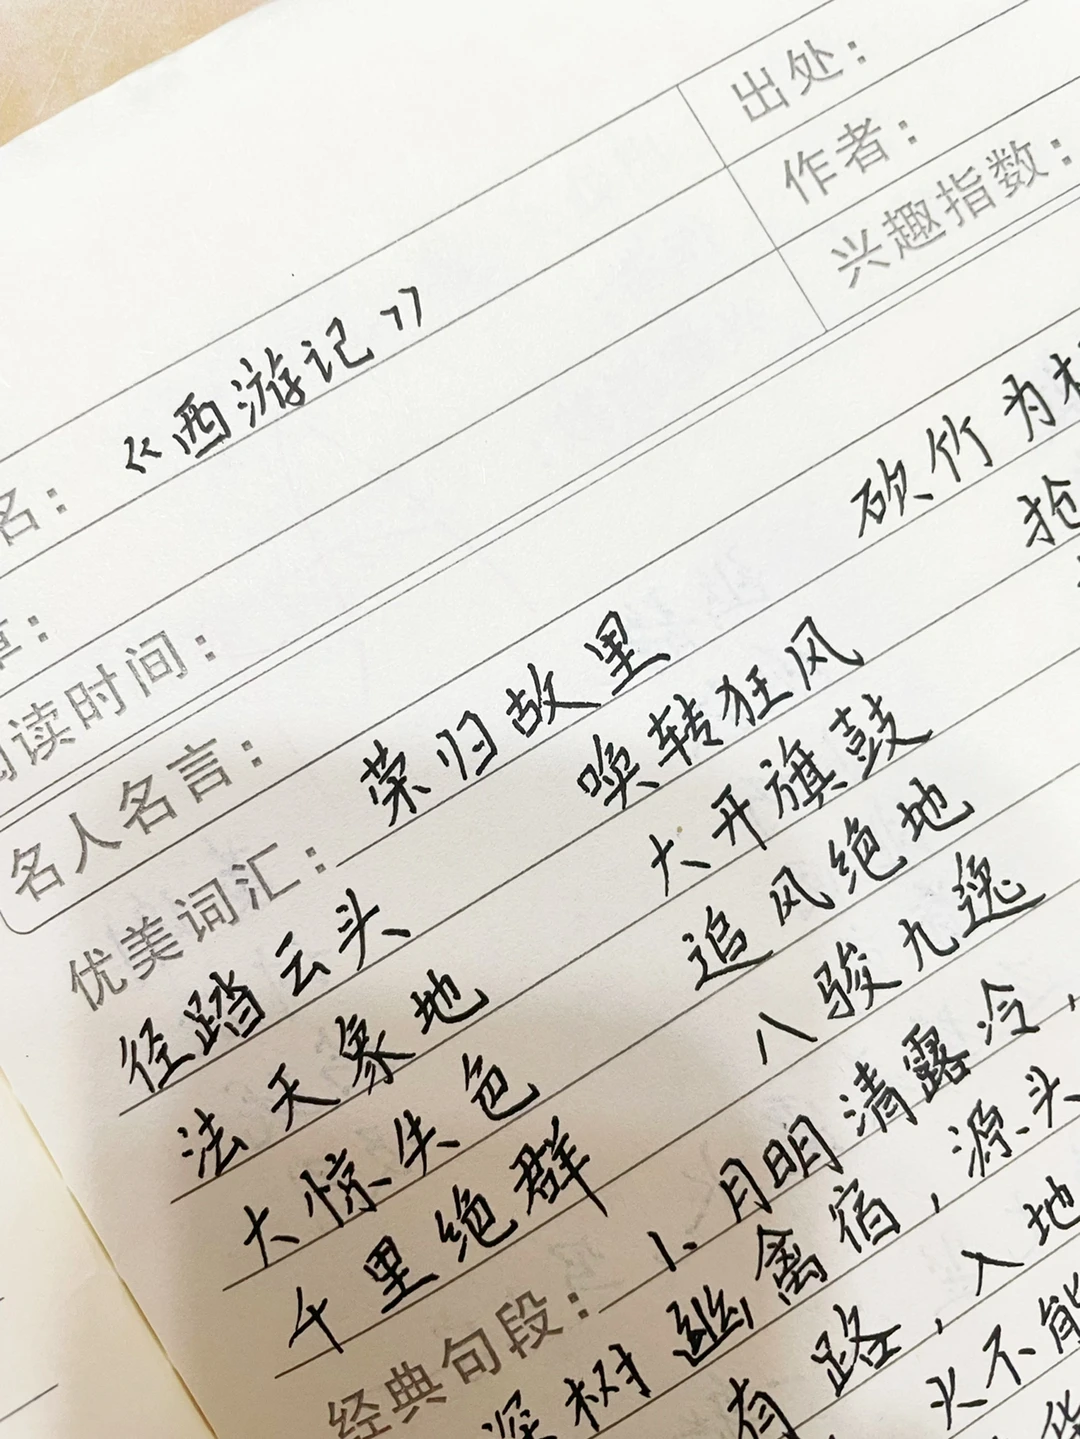 出处：
作者：
兴趣指数：
名：《西游记》
章：
阅读时间：
名人名言：
优美词汇： 荣归故里 砍竹为
径踏云头 唤转狂风 抢
法天象地 大开旗鼓
大惊失色 追风绝地
千里绝群 八骏九逸
经典句段： 1、月明清露冷，
深树幽禽宿，源头
有路，入地
火不能